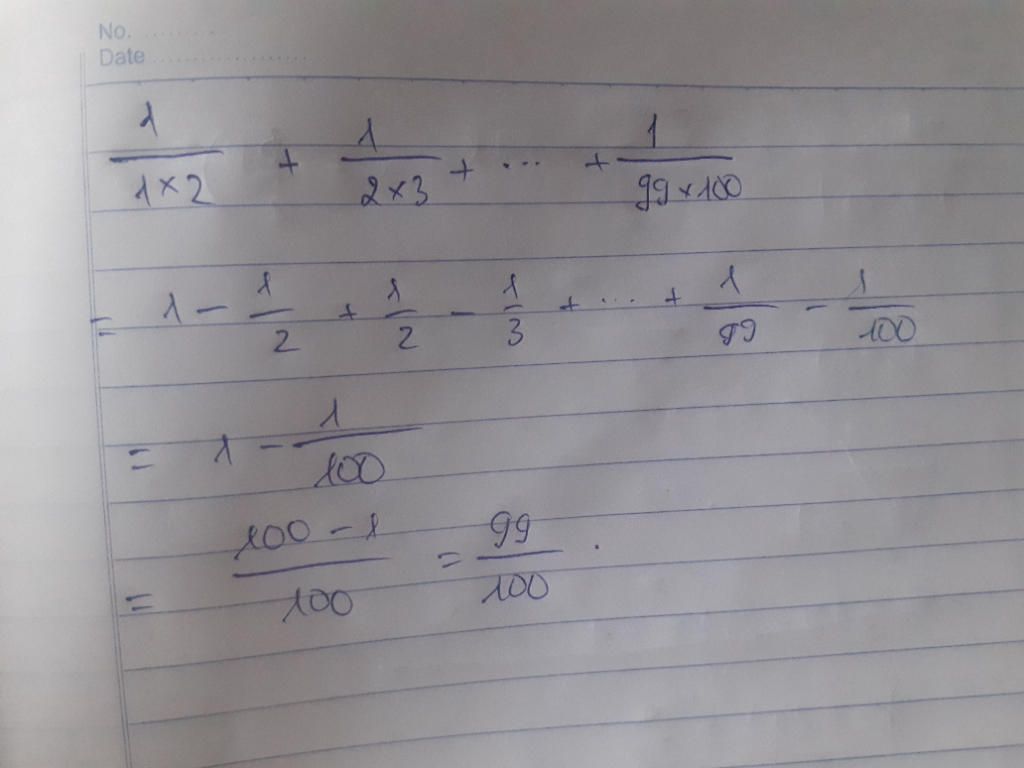 No. ..............
Date ........................
1/(1×2) + 1/(2×3) + ... + 1/(99×100)
= 1 - 1/2 + 1/2 - 1/3 + ... + 1/99 - 1/100
= 1 - 1/100
= (100 - 1)/100 = 99/100 .